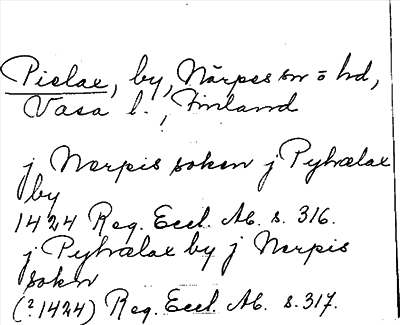 Pielax, by, Närpes sn o hd,
Vasa l., Finland
j Nærpis soken j Pyhælax
by
1424 Reg. Eccl. Ab. s. 316.
j Pyhælax by j Nerpis
soken
(?1424) Reg. Eccl. Ab. s. 317.